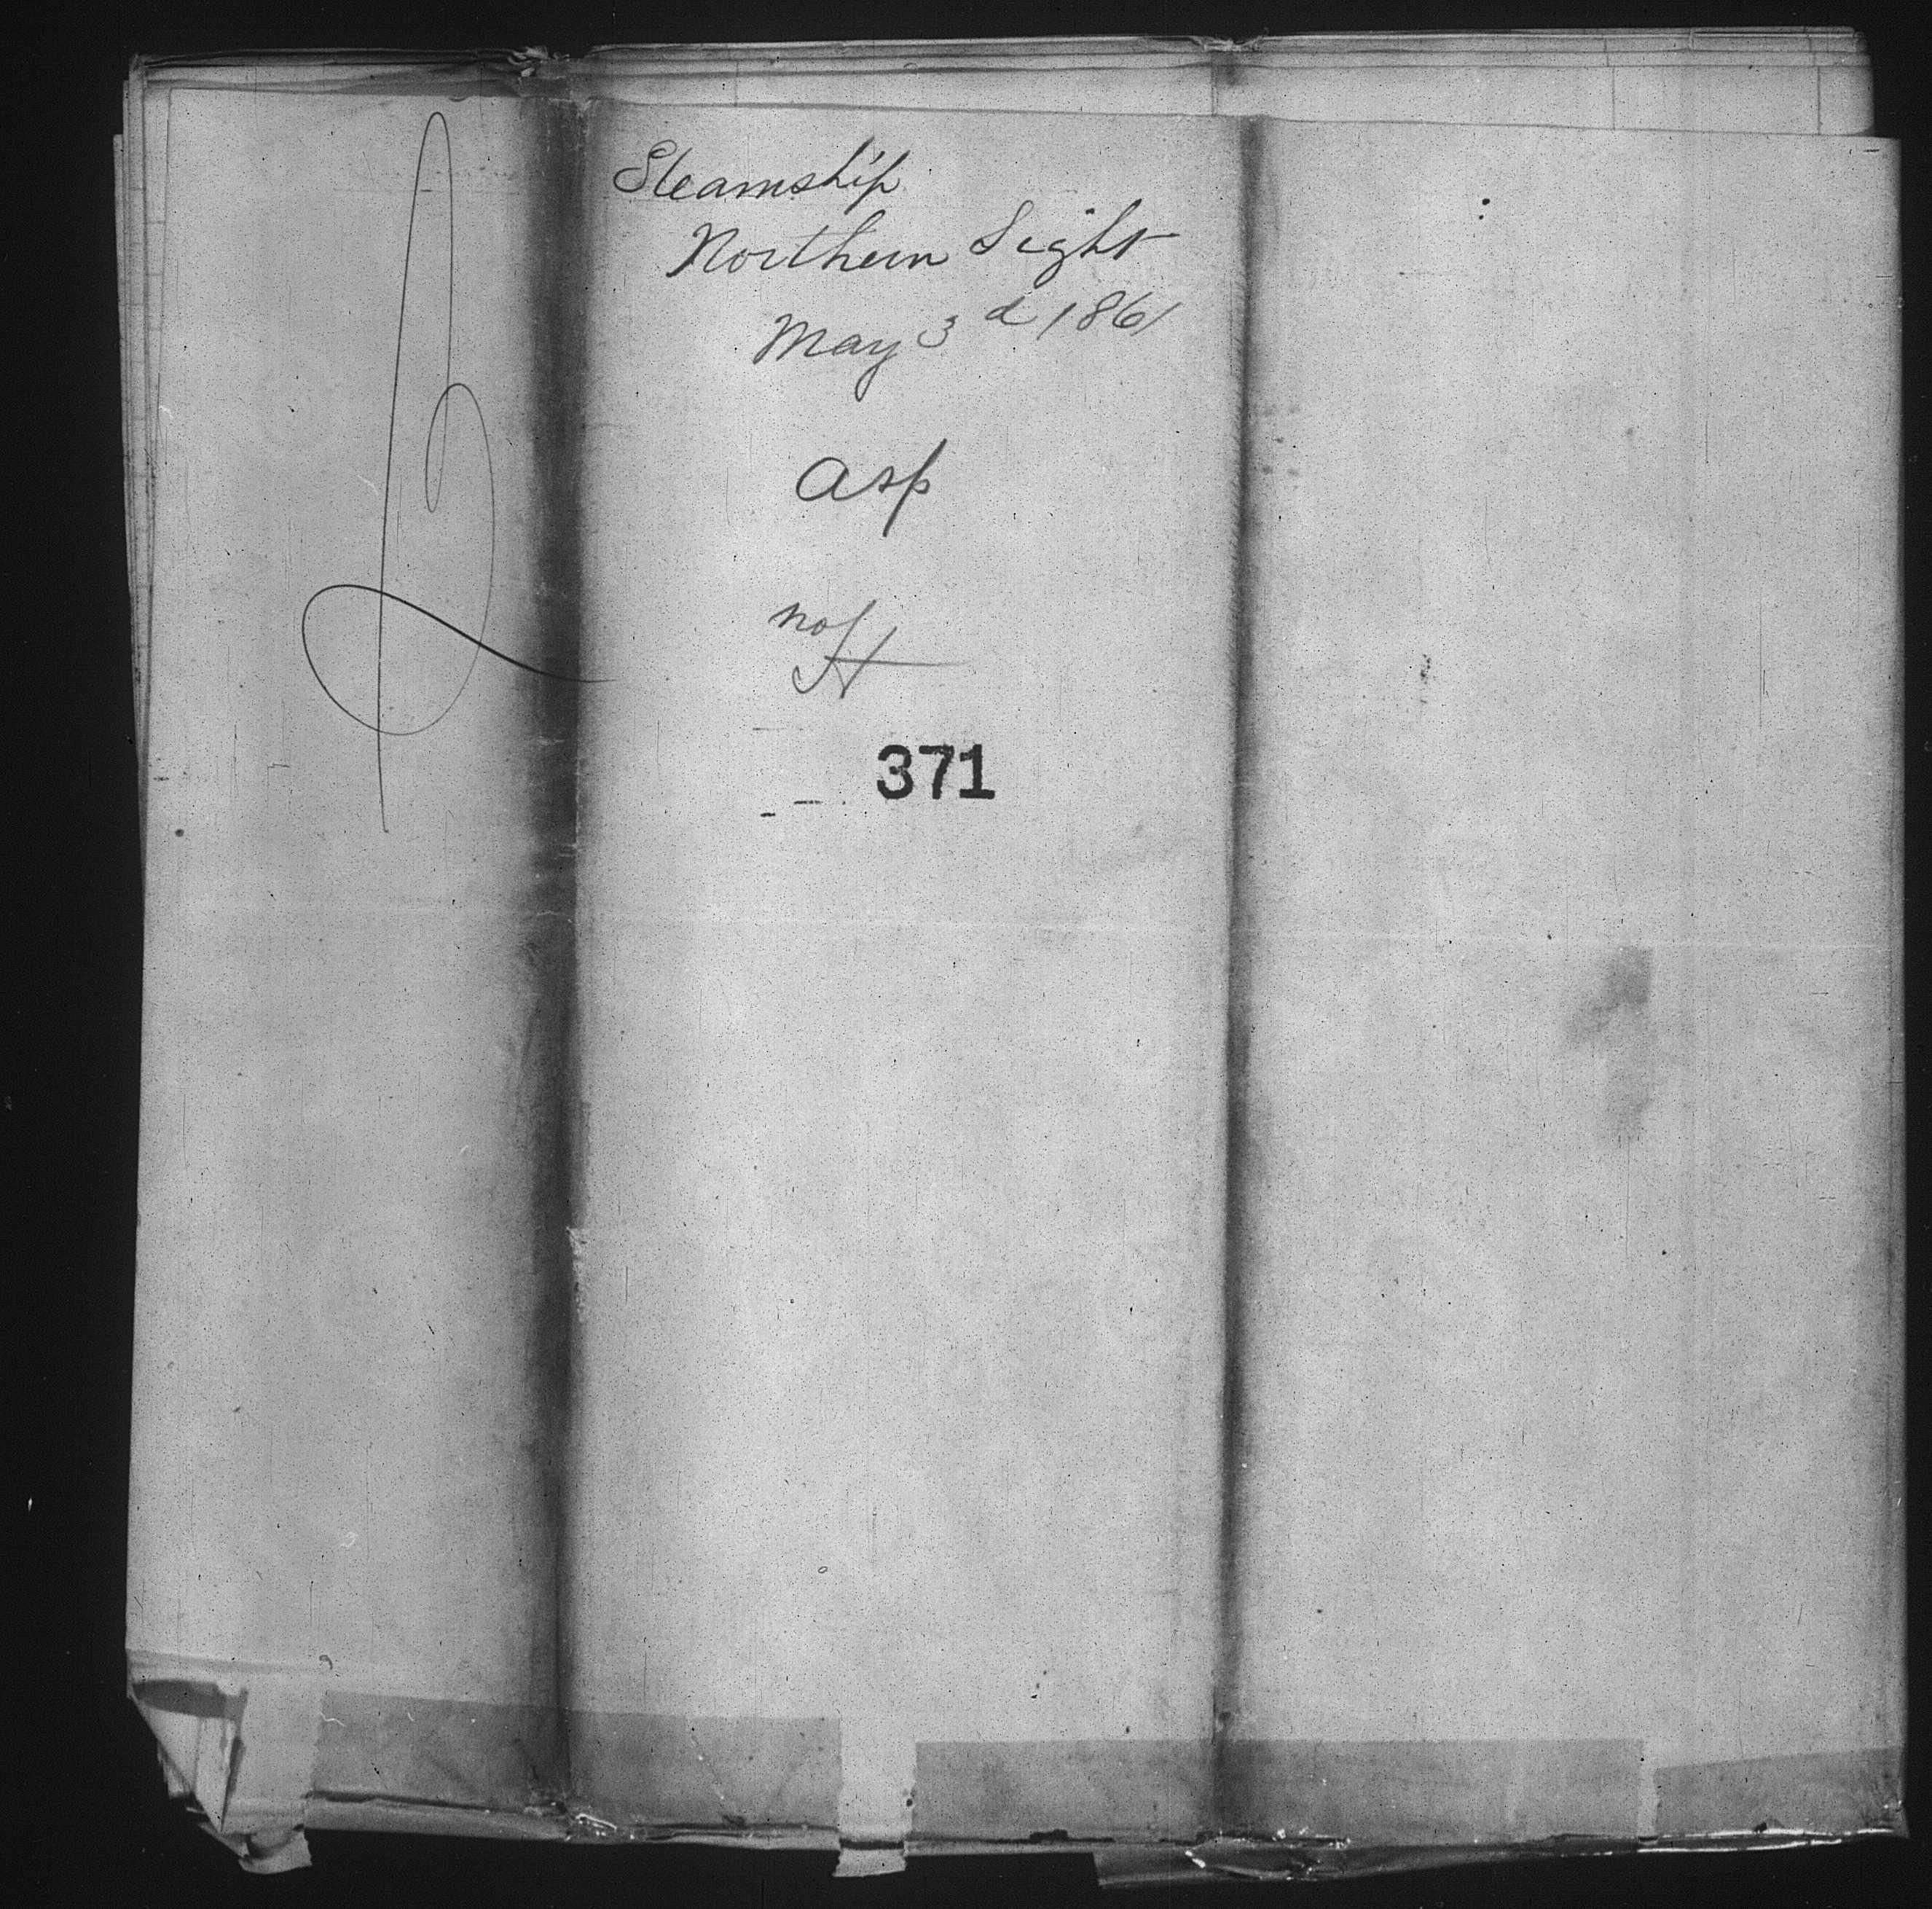 Steamship
Northern Light
May 3d 1861
Asp
no
371